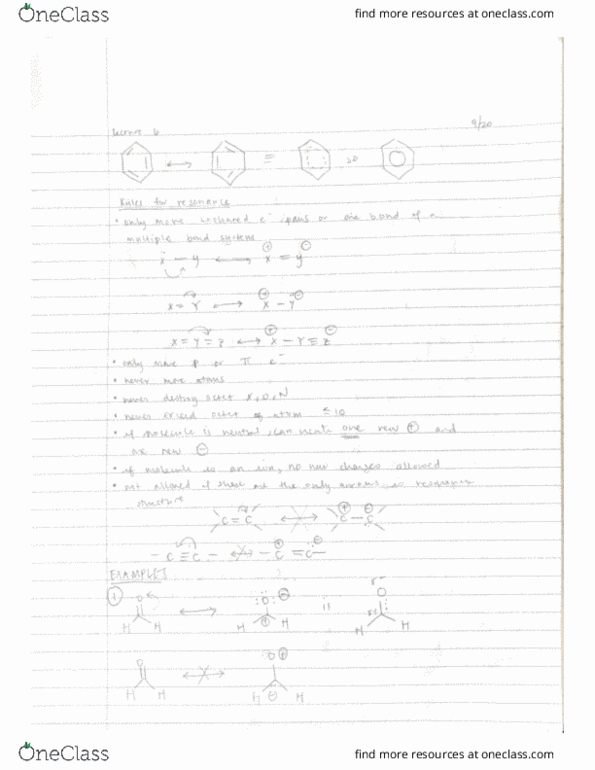 OneClass
find more resources at oneclass.com
Lecture 6
9/20
Rules for resonance
• only move unshared e⁻ pairs or one bond of a
multiple bond systems
x – y ⟷ x = y
⊕ ⊖
x = Y ⟷ x – Y
⊕ ⊖
x = Y = Z ⟷ x – Y ≡ Z
⊕ ⊖
• only move p or π e⁻
• never move atoms
• never destroy octet
• never exceed octet of atom ≤ 10
• if molecule is neutral, can create one new ⊕ and
one new ⊖
• if molecule is an ion, no new charges allowed
• not allowed if these are the only
structure
C = C C – C
⊕ ⊖
– C ≡ C – – C = C –
⊕ ⊖
EXAMPLES
1
O O ⊖ O δ⁻
H H ⊕ H H H H
O O ⊕
H H H ⊖ H
OneClass
find more resources at oneclass.com